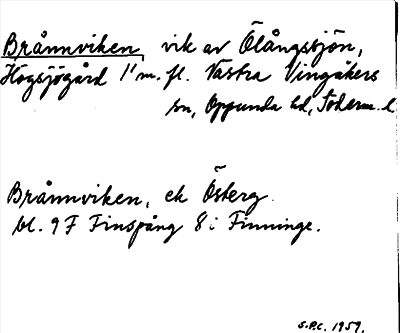 Brånnviken, vik av Ölångsjön,
Högsjögård 1¹ m. fl. Västra Vingåkers
sn, Oppunda hd, Söderm. l
Brånnviken, ek Österg.
bl. 9 F Finspång 8 i Finninge.
S.P.C. 1959.